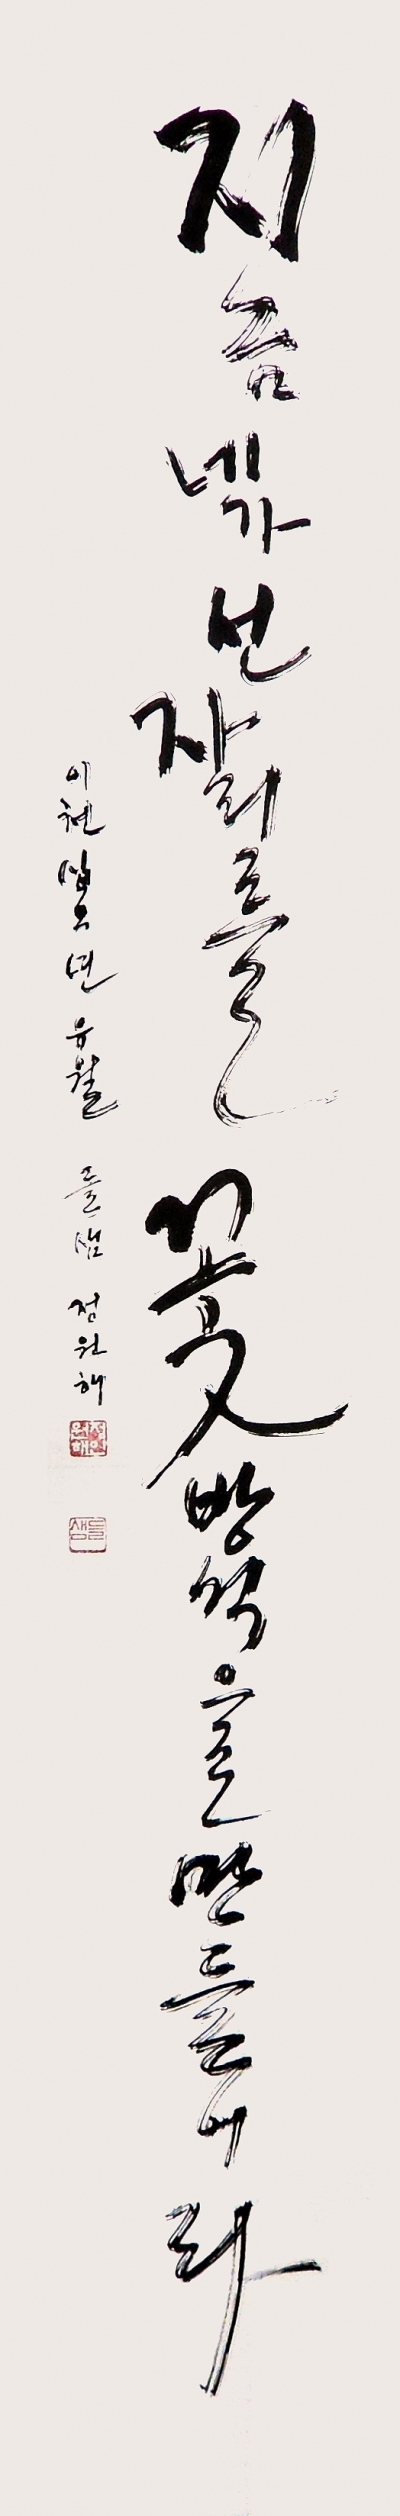 지금 네가 선 자리를 꽃방석을 만들어라
이천십오년 유월 들샘 정원해
정원해
들샘